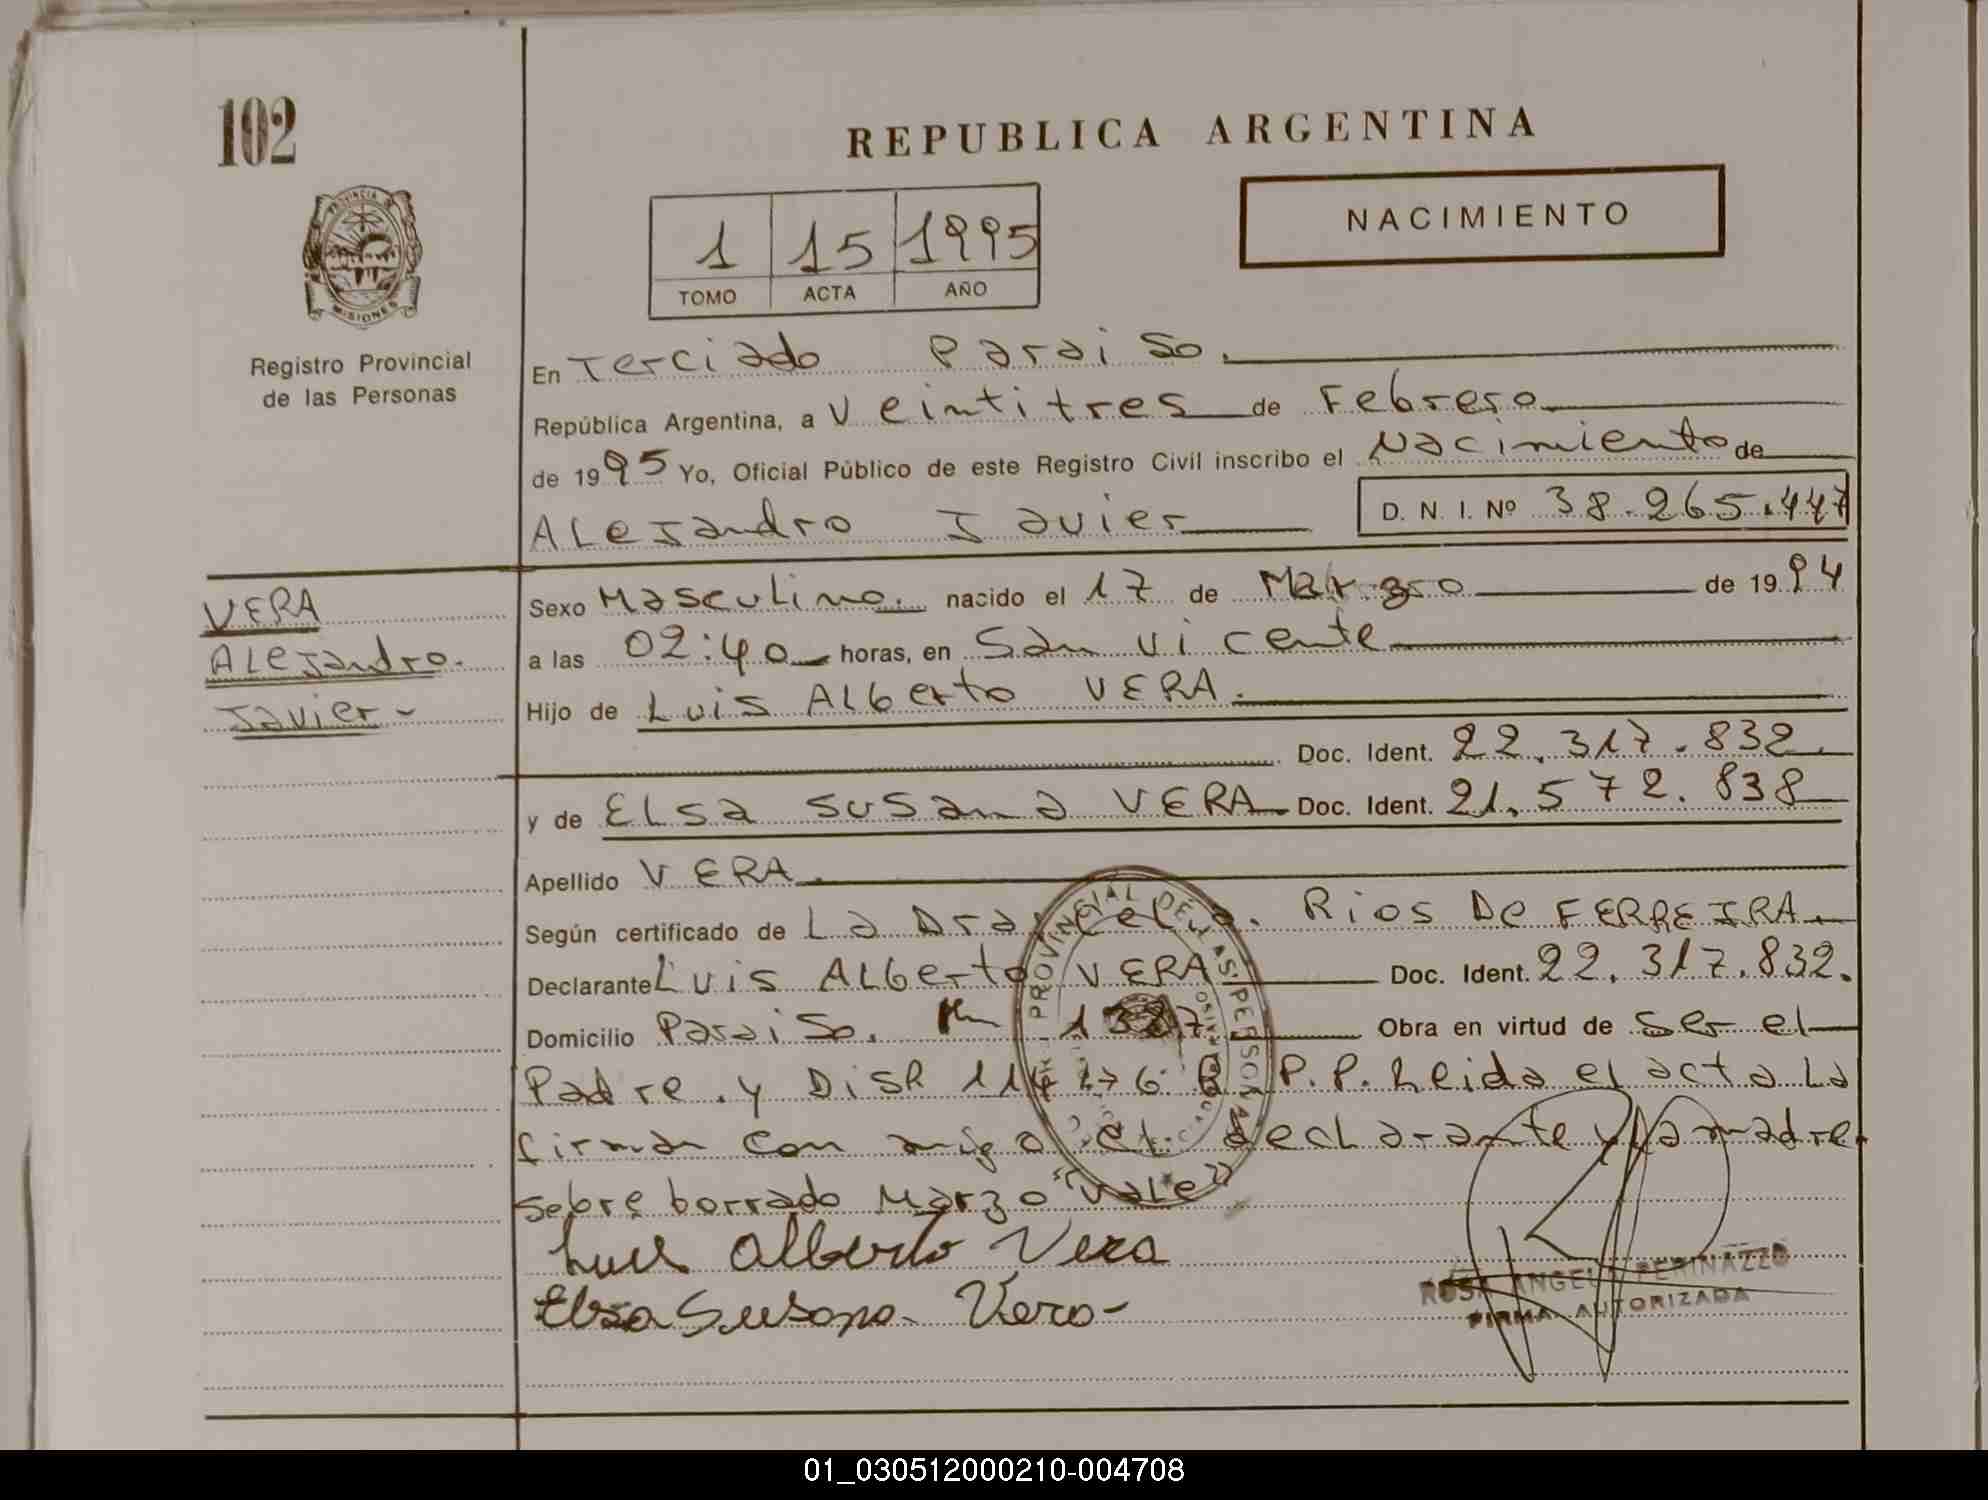 102
REPUBLICA ARGENTINA
NACIMIENTO
1 15 1995
TOMO ACTA AÑO
PROVINCIA D
MISIONES
Registro Provincial
de las Personas
En Terciado Paraiso.
República Argentina, a Veintitres de Febrero
de 1995 Yo, Oficial Público de este Registro Civil inscribo el Nacimiento de
Alejandro Javier D. N. I. Nº 38.265.447
VERA
Alejandro.
Javier-
Sexo Masculino. nacido el 17 de Marzo de 1994
a las 02:40 horas, en San Vicente
Hijo de Luis Alberto VERA.
Doc. Ident. 22.317.832.
y de Elsa Susana VERA Doc. Ident. 21.572.838
Apellido VERA.
Según certificado de La Dra. Rios De FERREIRA
Declarante Luis Alberto VERA Doc. Ident. 22.317.832.
Domicilio Paraiso. Km Obra en virtud de ser el
Padre. y Disp P.P. Leida el acta La
firman con migo el declarante y la madre.
sobre borrado Marzo "Vale"
PROVINCIAL DE LAS PERSONAS
Luis Alberto Vera
Elsa Susana Vera-
ROSA ANGELA PERINAZZO
FIRMA AUTORIZADA
01_030512000210-004708